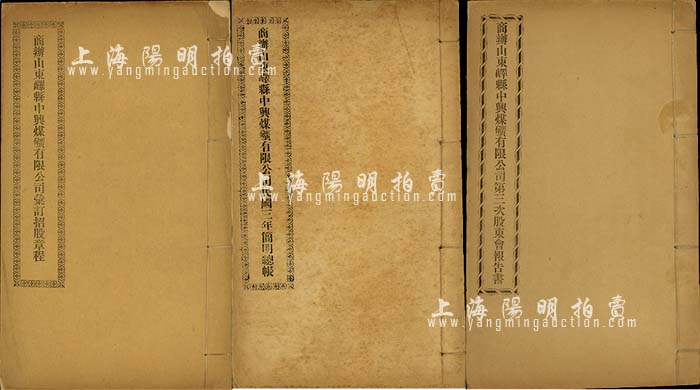 商辦山東嶧縣中興煤礦有限公司彙訂招股章程
商辦山東嶧縣中興煤礦有限公司民國三年簡明總帳
商辦山東嶧縣中興煤礦有限公司第三次股東會報告書
上海陽明拍賣
www.yangmingauction.com
上海陽明拍賣
www.yangmingauction.com
上海陽明拍賣
www.yangmingauction.com
上海陽明拍賣
www.yangmingauction.com